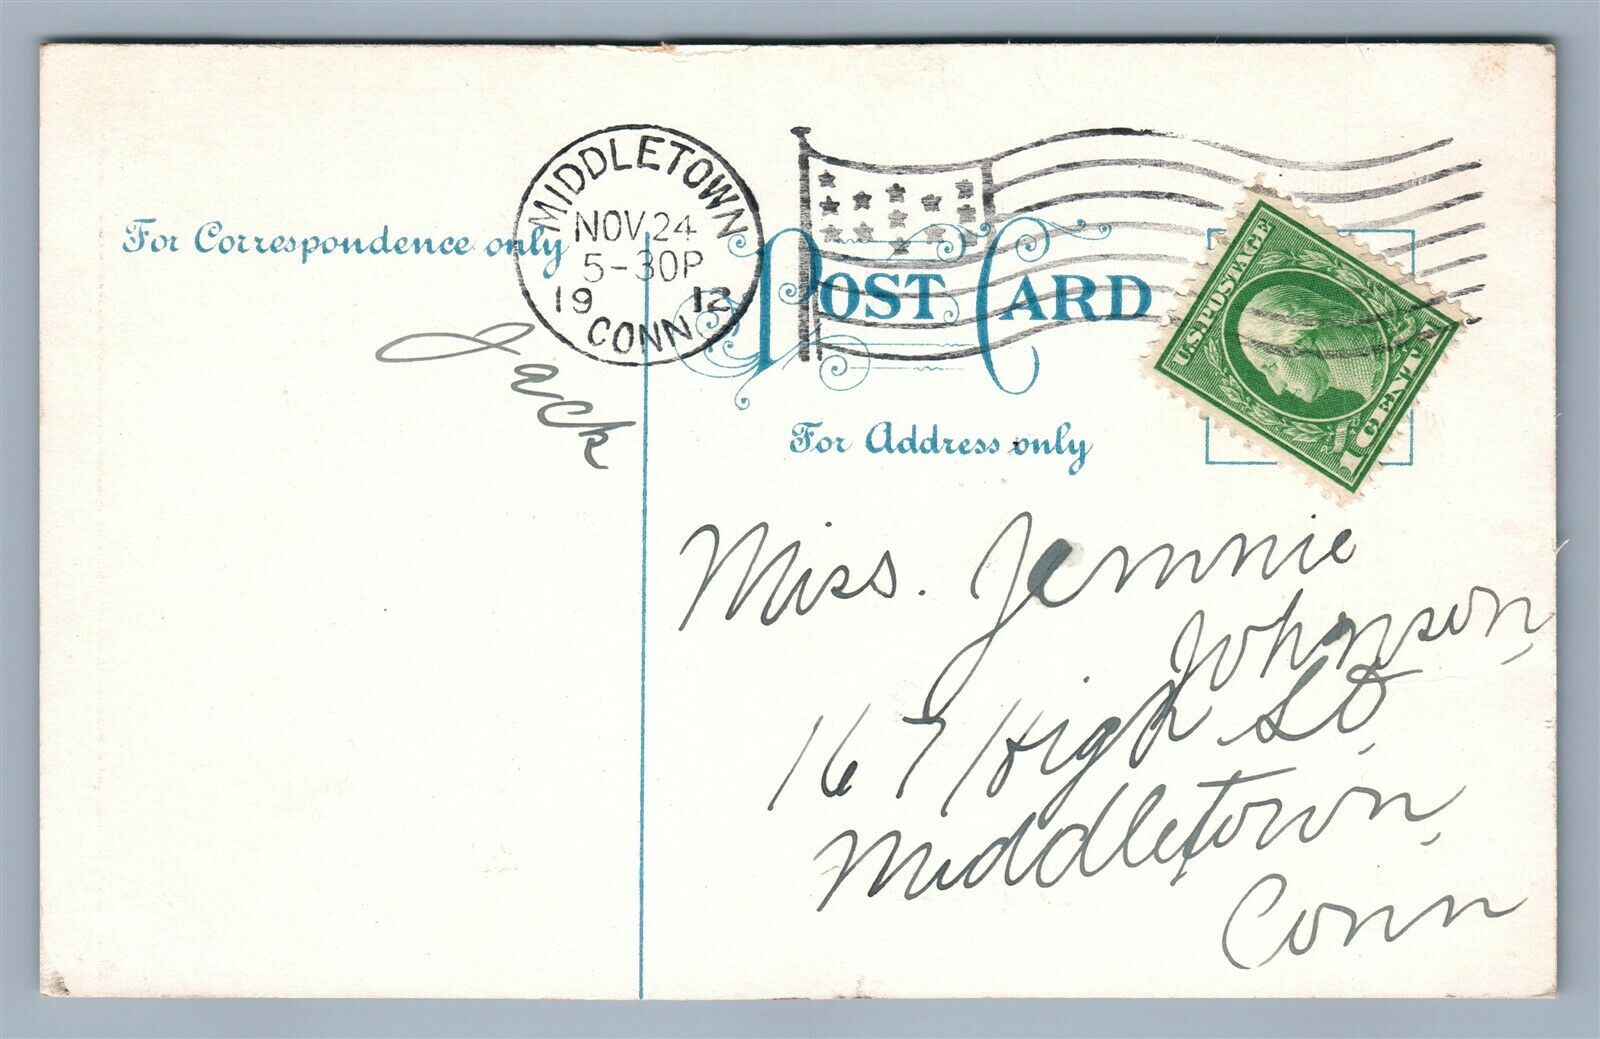 For Correspondence only
MIDDLETOWN
NOV 24
5-30P
19 12
CONN
POST CARD
For Address only
U.S. POSTAGE
1 CENT 1
Jack
Miss. Jennie
Johnson,
167 High St.
Middletown,
Conn